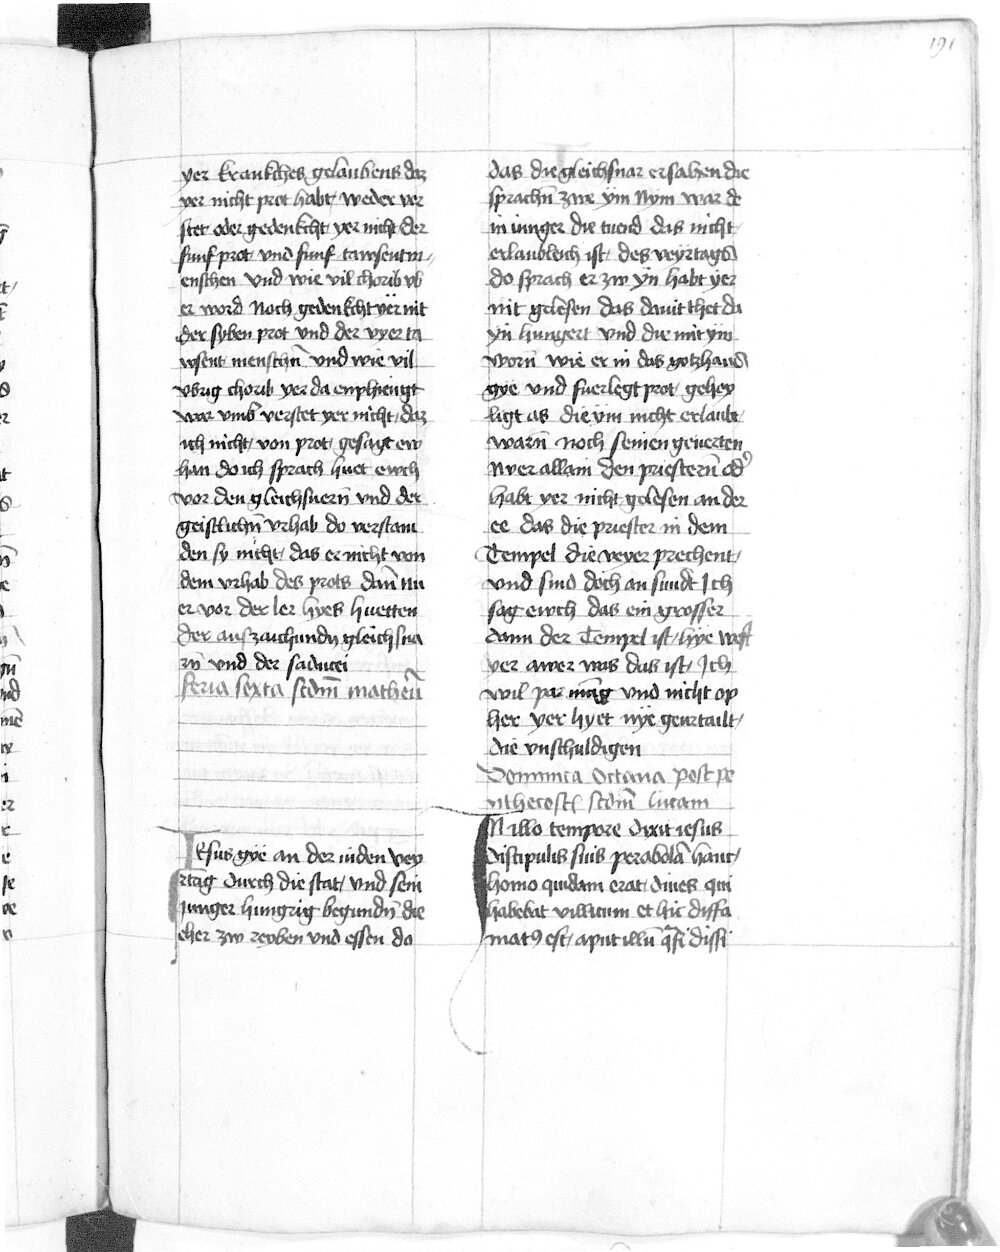 191
yer krankches gelaubens daz
yer nicht prot habt weder ver
stet oder gedenkcht yer nicht der
funf prot vnd funf tawsentm
enschen vnd wie vil chorib vb
er word Noch gedenkcht yer nit
der syben prot vnd der vyer ta
wsent menschn̄ vnd wie vil
vbrig chorib yer da enphiengt
war vmb verstet yer nicht daz
ich nicht von prot gesagt ew
han do ich sprach huet ewch
vor den gleichsnern̄ vnd der
geistlichn̄ vrhab do verstam
den sy nicht das er nicht von
dem vrhab des prots dan̄ nu
er vor der ler hyes huetten
der aufzaichundn gleichsna
rn̄ vnd der saducei
feria sexta scdm̄ matheū
Iesus gye an der iuden vey
rtag durch die stat vnd sein
Junger hungrig begundn̄ die
eher zw reyben vnd essen do
das die gleichsnar ersahen die
sprachn̄ zwe ym Nym war de
in iunger die tuend das nicht
erlaubleich ist des veyrtags
do sprach er zw yn habt yer
nit gelesen das dauit thet da
yn hungert vnd die mit ym
worn̄ wie er in das gotzhaus
gye vnd fuerlegt prot gehey
ligt as die ym nicht erlaubt
warn̄ noch seinen geuerten
Nver allain den priestern̄ od'
habt yer nicht gelesen an der
ee das die priester in dem
Tempel die veyer prechent
vnd sind doch an sundt Ich
sag ewch das ein grosser
dann der Tempel ist hye west
yer awer was das ist Ich
wil parmūg vnd nicht op
her yer hyet nye geurtailt
die vnschuldigen
Dominica Octaua post pe
nthecost scdm̄ lucam
IN illo tempore dixit iesus
discipulis suis perabolā hanc
homo quidam erat diues qui
habebat villicum et hic diffa
mat9 est aput illū q̄si dissi